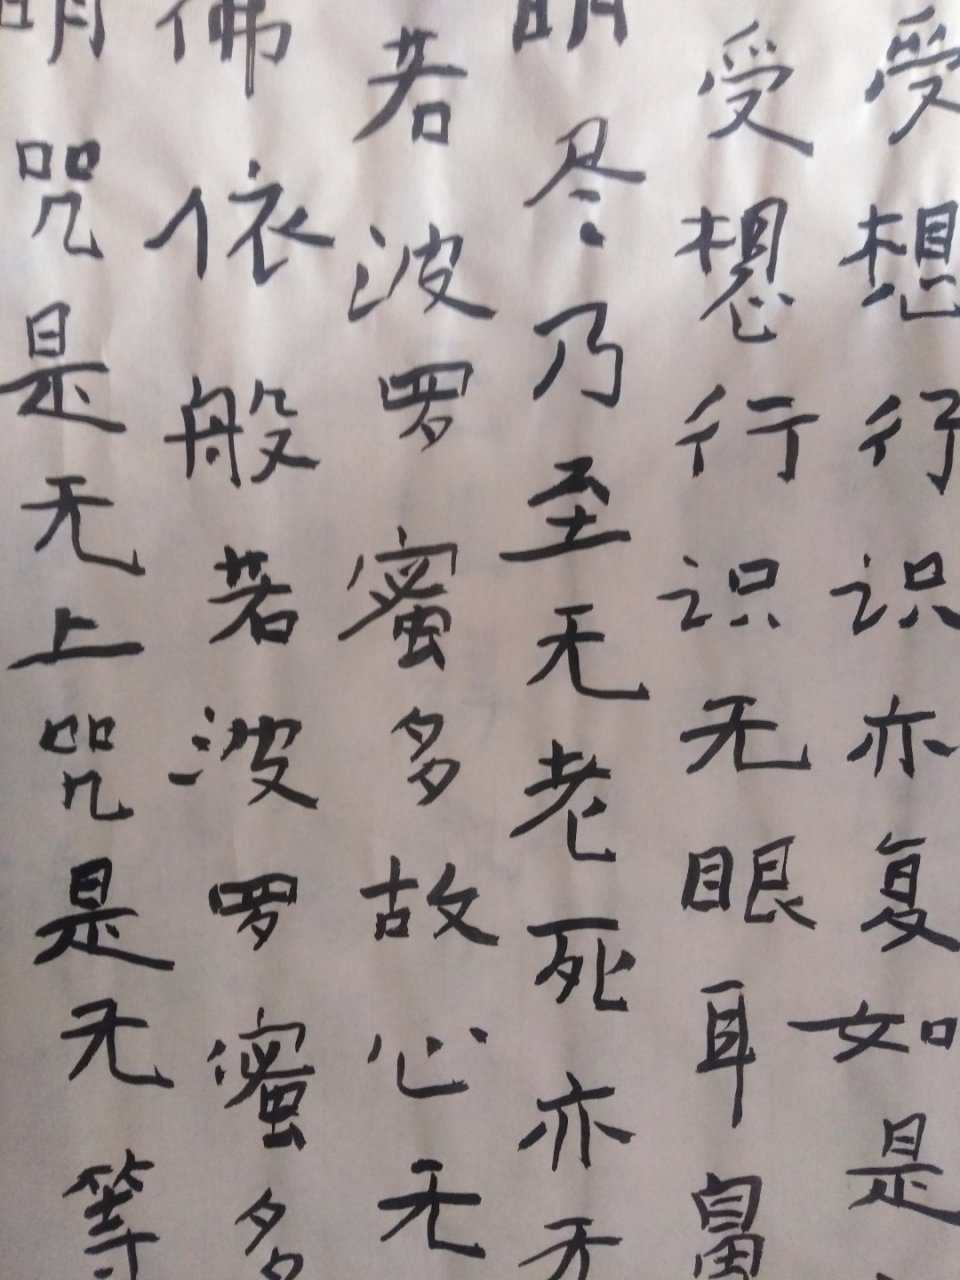 受想行识亦复如是
受想行识无眼耳鼻
明尽乃至无老死亦无
若波罗蜜多故心无
佛依般若波罗蜜多
明咒是无上咒是无等